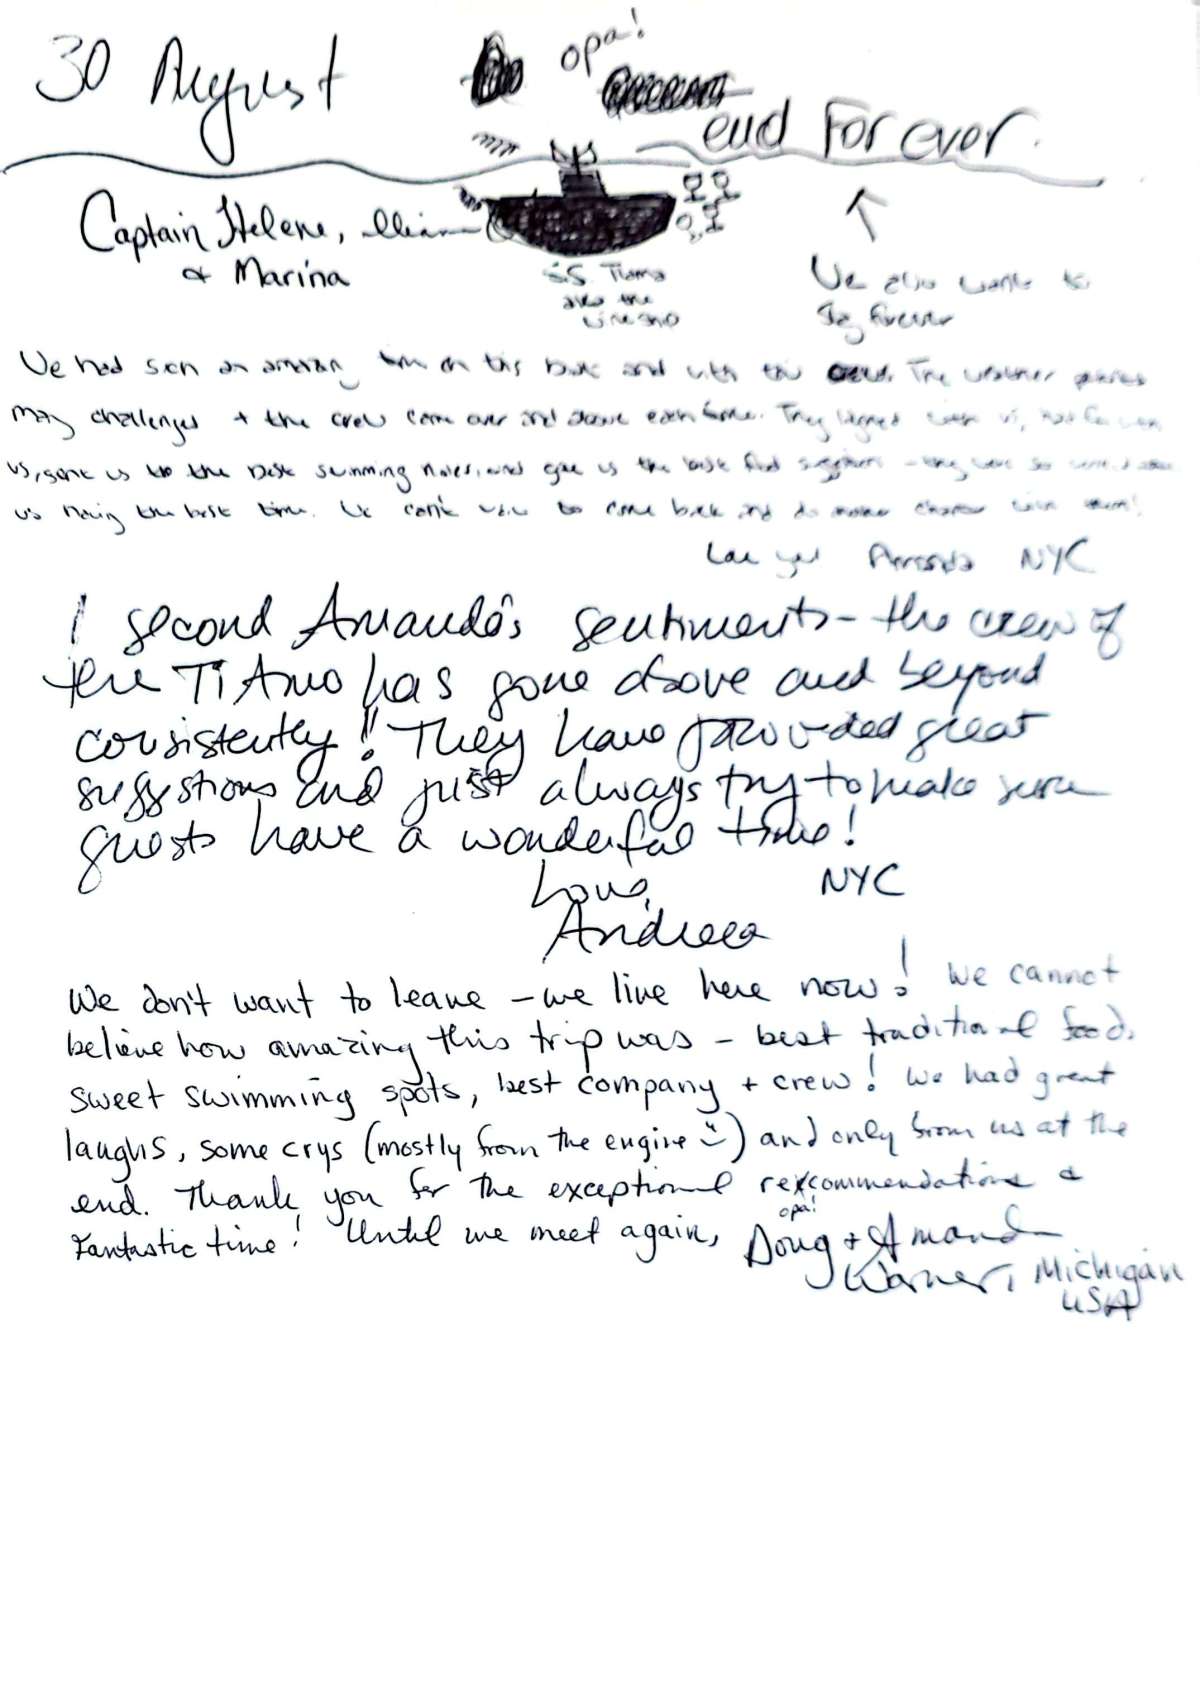 30 August
opa!
end Forever.
Captain Helene,
& Marina
SS. Tiamo
aka the
We also want to
stay forever
We had such an amazing time on this boat and with this crew. The weather
many challenges + the crew came over and above each time. They with us, had fun with
us, sent us to the best swimming holes, and gave us the best food suggestions - they were so
us having the best time. We can't wait to come back and do another charter with them!
Love you Amanda NYC
I second Amanda's sentiments - the crew of
the Ti Amo has gone above and beyond
consistently! They have provided great
suggestions and just always try to make sure
guests have a wonderful time!
Love, NYC
Andreea
We don't want to leave - we live here now! We cannot
believe how amazing this trip was - best traditional food,
sweet swimming spots, best company + crew! We had great
laughs, some crys (mostly from the engine) and only from us at the
end. Thank you for the exceptional recommendations &
Fantastic time! Until we meet again, opa! Doug + Amanda
Warner, Michigan
USA